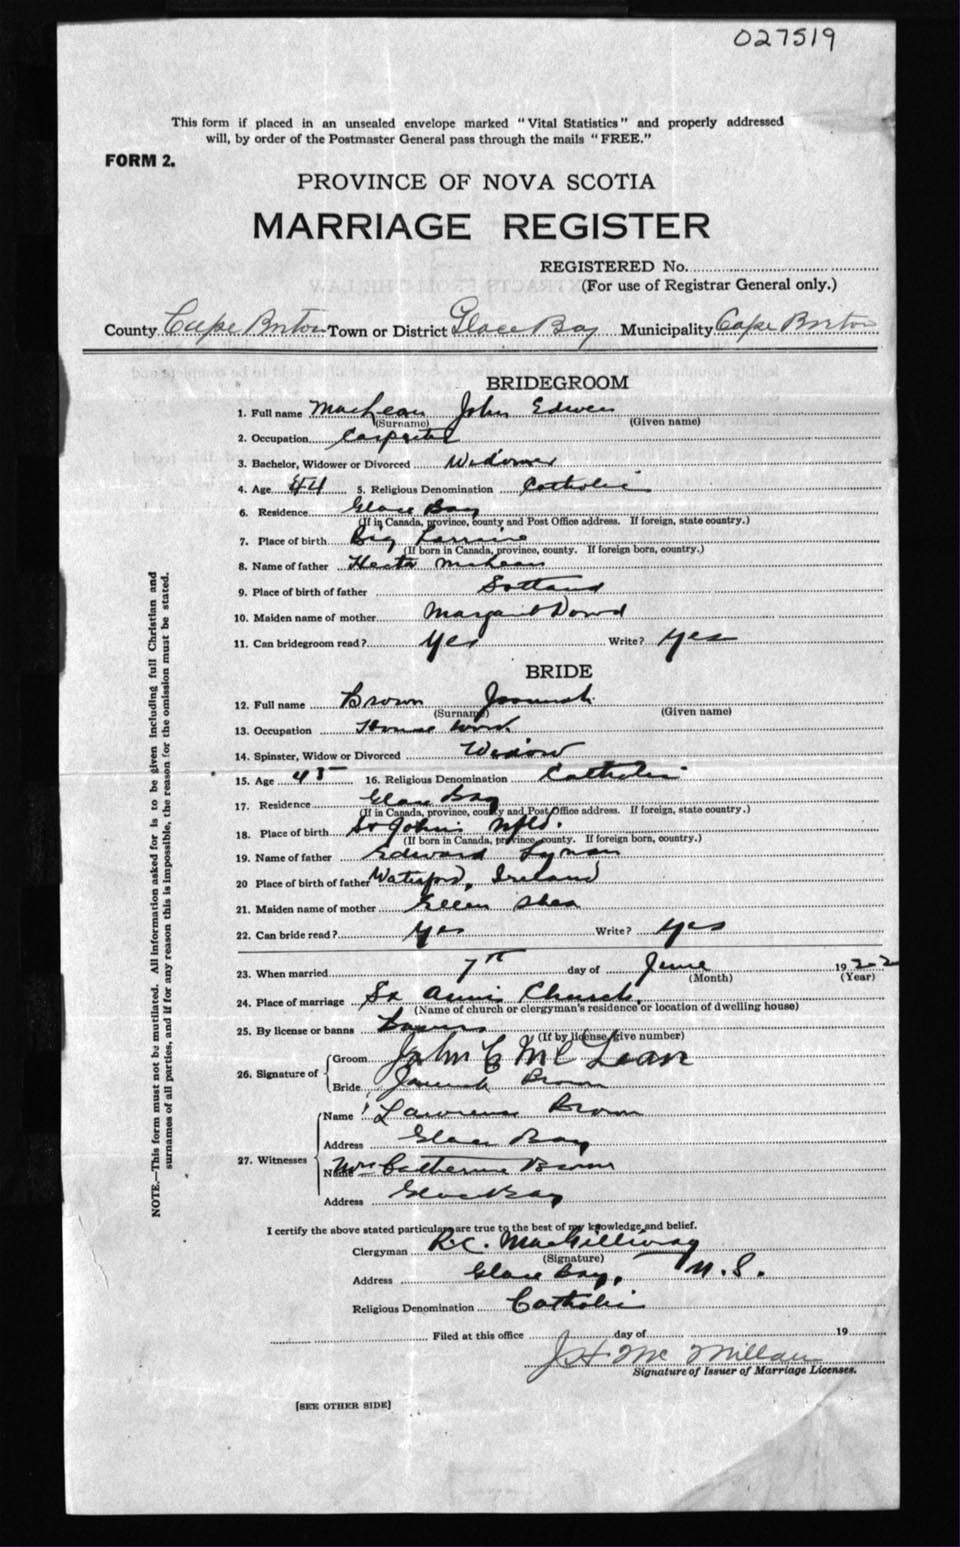 027519
This form if placed in an unsealed envelope marked "Vital Statistics" and properly addressed
will, by order of the Postmaster General pass through the mails "FREE."
FORM 2.
PROVINCE OF NOVA SCOTIA
MARRIAGE REGISTER
REGISTERED No.
(For use of Registrar General only.)
County Cape Breton Town or District Glace Bay Municipality Cape Breton
BRIDEGROOM
1. Full name MacLean John Edwin
(Surname) (Given name)
2. Occupation Carpenter
3. Bachelor, Widower or Divorced Widower
4. Age 44 5. Religious Denomination Catholic
6. Residence Glace Bay
(If in Canada, province, county and Post Office address. If foreign, state country.)
7. Place of birth Big Lorraine
(If born in Canada, province, county. If foreign born, country.)
8. Name of father Hector McLean
9. Place of birth of father Scotland
10. Maiden name of mother Margaret Dowd
11. Can bridegroom read? Yes Write? Yes
BRIDE
12. Full name Brown
(Surname) (Given name)
13. Occupation House work
14. Spinster, Widow or Divorced Widow
15. Age 45 16. Religious Denomination Catholic
17. Residence Glace Bay
(If in Canada, province, county and Post Office address. If foreign, state country.)
18. Place of birth St Johns Nfld.
(If born in Canada, province, county. If foreign born, country.)
19. Name of father Edward
20 Place of birth of father Waterford, Ireland
21. Maiden name of mother Ellen Shea
22. Can bride read? Yes Write? Yes
23. When married 7th day of June 1922
(Month) (Year)
24. Place of marriage St Anns Church.
(Name of church or clergyman's residence or location of dwelling house)
25. By license or banns Banns
(If by license, give number)
26. Signature of Groom John E McLean
Bride Brown
27. Witnesses Name Lawrence Brown
Address Glace Bay
Name Mrs Catherine Brown
Address Glace Bay
I certify the above stated particulars are true to the best of my knowledge and belief.
Clergyman R.C. MacGillivray
(Signature)
Address Glace Bay, N.S.
Religious Denomination Catholic
Filed at this office day of 19
J H McMillan
Signature of Issuer of Marriage Licenses.
[SEE OTHER SIDE]
NOTE.—This form must not be mutilated. All information asked for is to be given including full Christian and
surnames of all parties, and if for any reason this is impossible, the reason for the omission must be stated.